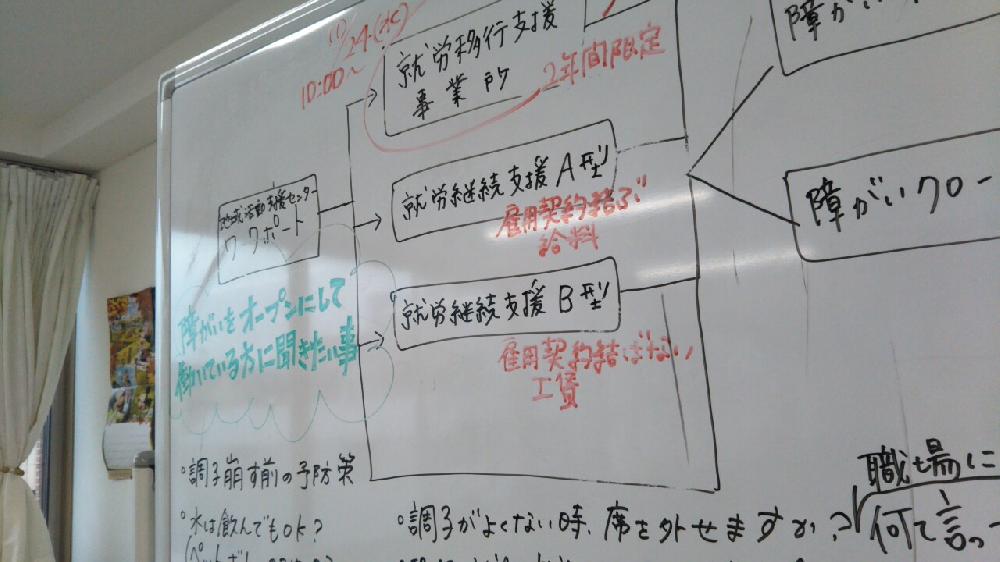 10/24(水)
10:00〜
就労移行支援
事業所
2年間限定
障がい
地域活動支援センター
ワークポート
就労継続支援A型
雇用契約結ぶ
給料
障がいクロー
就労継続支援B型
雇用契約結ばない
工賃
障がいをオープンにして
働いている方に聞きたい事
○調子崩す前の予防策
○水は飲んでもOK?
○調子がよくない時、席を外せますか?
職場に
何て言っ